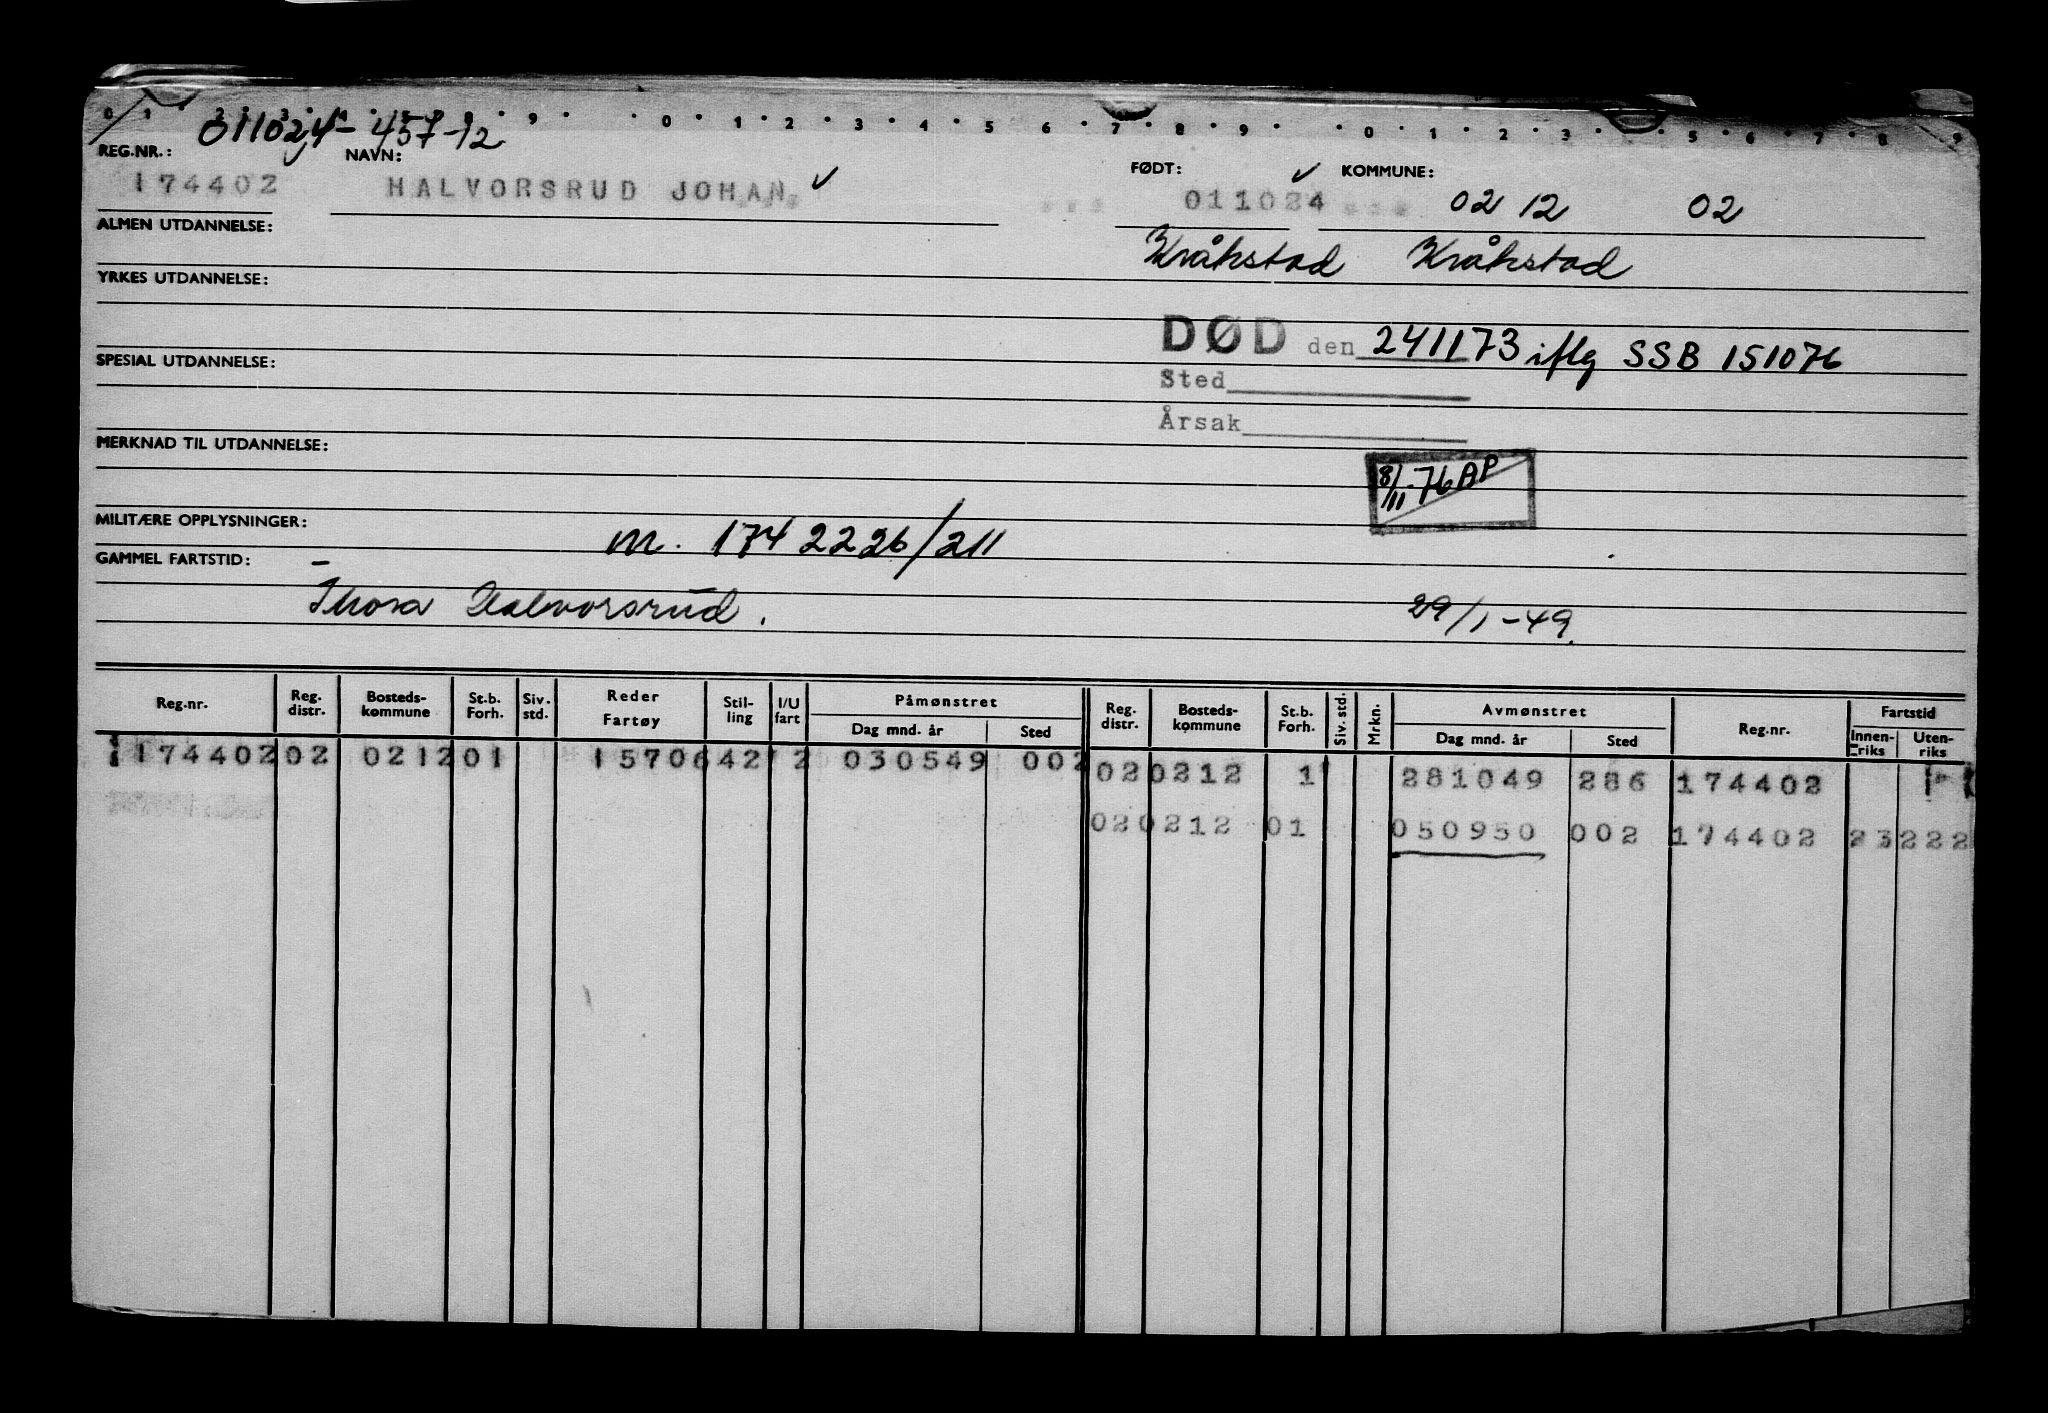 0 1 2 3 4 5 7 8 9 0 1 2 3 4 5 6 7 8 9 0 1 2 3 5 6 7 8 9
011024-457-12
REG.NR.: NAVN: FØDT: KOMMUNE:
174402 HALVORSRUD JOHAN 011024 02 12 02
ALMEN UTDANNELSE: Kråkstad Kråkstad
YRKES UTDANNELSE:
DØD den 241173 iflg SSB 151076
SPESIAL UTDANNELSE:
Sted
Årsak
MERKNAD TIL UTDANNELSE:
8/11-76 AP
MILITÆRE OPPLYSNINGER: m. 174 2226/211
GAMMEL FARTSTID:
Thora Halvorsrud. 29/1-49.
Reg.nr. Reg. distr. Bosteds-kommune St.b. Forh. Siv. std. Reder Fartøy Stil-ling I/U fart Påmønstret Dag mnd. år Sted Reg. distr. Bosteds-kommune St.b. Forh. Siv. std. Mrkn. Avmønstret Dag mnd. år Sted Reg.nr. Fartstid Innen-riks Uten-riks
174402 02 0212 01 15706 42 2 030549 002
02 0212 1 281049 286 174402
02 0212 01 050950 002 174402 23 222